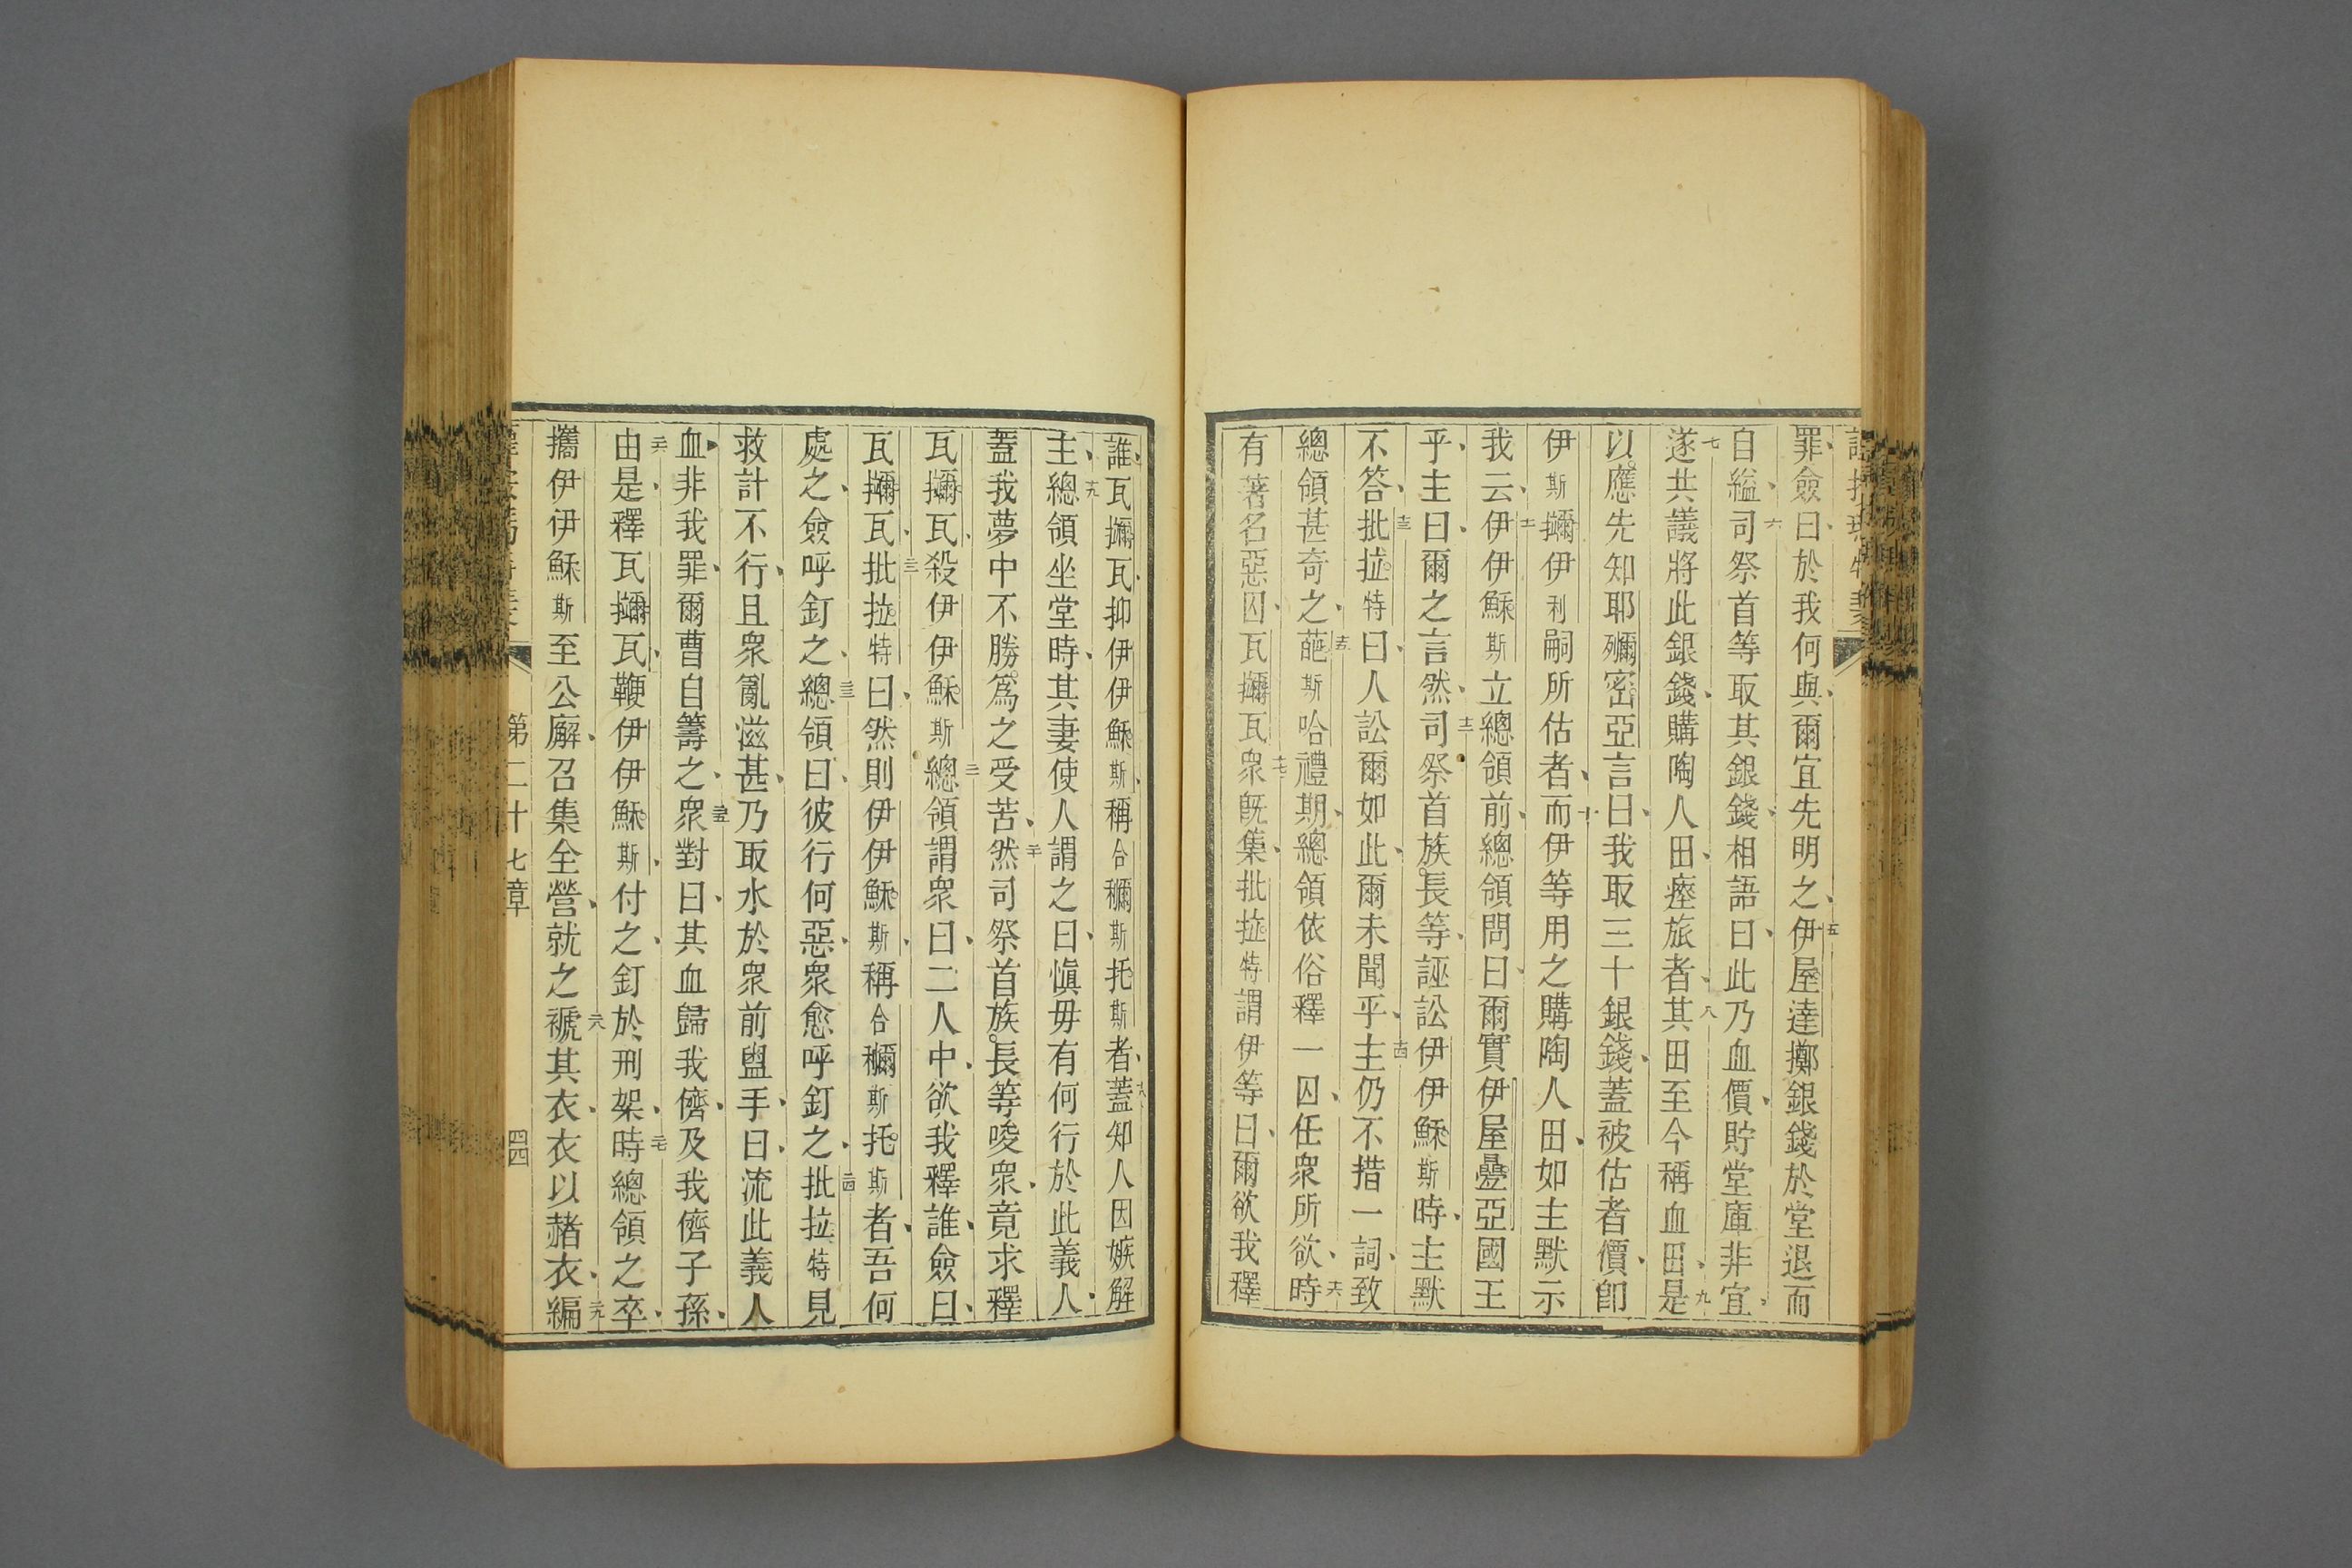 罪、僉曰、於我何與、爾宜先明之、五伊屋達擲銀錢於堂退而
自縊、六司祭首等取其銀錢、相語曰、此乃血價、貯堂庫非宜、
七遂共議將此銀錢、購陶人田、瘞旅者、八其田至今稱血田、九是
以應先知耶㺠密亞言曰、我取三十銀錢、蓋被估者價、卽
伊斯擟伊利嗣所估者、十而伊等用之購陶人田、如主默示
我云、十一伊伊穌斯立總領前、總領問曰、爾實伊屋疊亞國王
乎、主曰、爾之言然、十二司祭首族長等、誣訟伊伊穌斯時、主默
不答、十三批拉特曰、人訟爾如此、爾未聞乎、十四主仍不措一詞、致
總領甚奇之、十五葩斯哈禮期、總領依俗釋一囚、任衆所欲、十六時
有著名惡囚、瓦擟瓦十七衆旣集、批拉特謂伊等曰、爾欲我釋
誰、瓦擟瓦、抑伊伊穌斯、稱合穪斯托斯者、十八蓋知人因嫉解
主、十九總領坐堂時、其妻使人謂之曰、愼毋有何行於此義人、
蓋我夢中不勝爲之受苦、二十然司祭首族長等唆衆、竟求釋
瓦擟瓦、殺伊伊穌斯二一總領謂衆曰、二人中、欲我釋誰、僉曰、
瓦擟瓦、二二批拉特曰、然則伊伊穌斯、稱合穪斯托斯者、吾何
處之、僉呼釘之、二三總領曰、彼行何惡、衆愈呼釘之、二四批拉特見
救計不行、且衆亂滋甚、乃取水於衆前盥手、曰、流此義人
血、非我罪、爾曹自籌之、二五衆對曰、其血歸我儕、及我儕子孫、
二六由是、釋瓦擟瓦、鞭伊伊穌斯、付之、釘於刑架、二七時總領之卒、
攜伊伊穌斯至公廨、召集全營、就之、二八褫其衣、衣以赭衣、二九編
第二十七章
四四